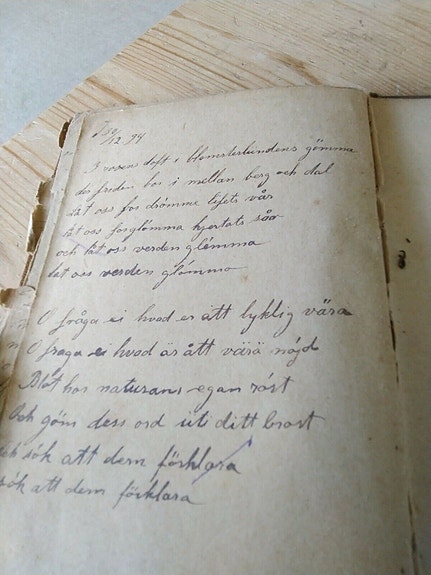 12. 94
I rosens doft i blomsterlundens gömma
der freden bor i mellan berg och dal
låt oss för drömme lifets vår
låt oss forglömma hjertats sår
och låt oss verden glömma
låt oss verden glömma
O fråga ei hvad er att lyklig vära
O fraga ei hvad är ått värä nöjd
Blåt hor naturans egan röst
Och göm dess ord uti ditt brost
och sök att dem förklara
sök att dem förklara